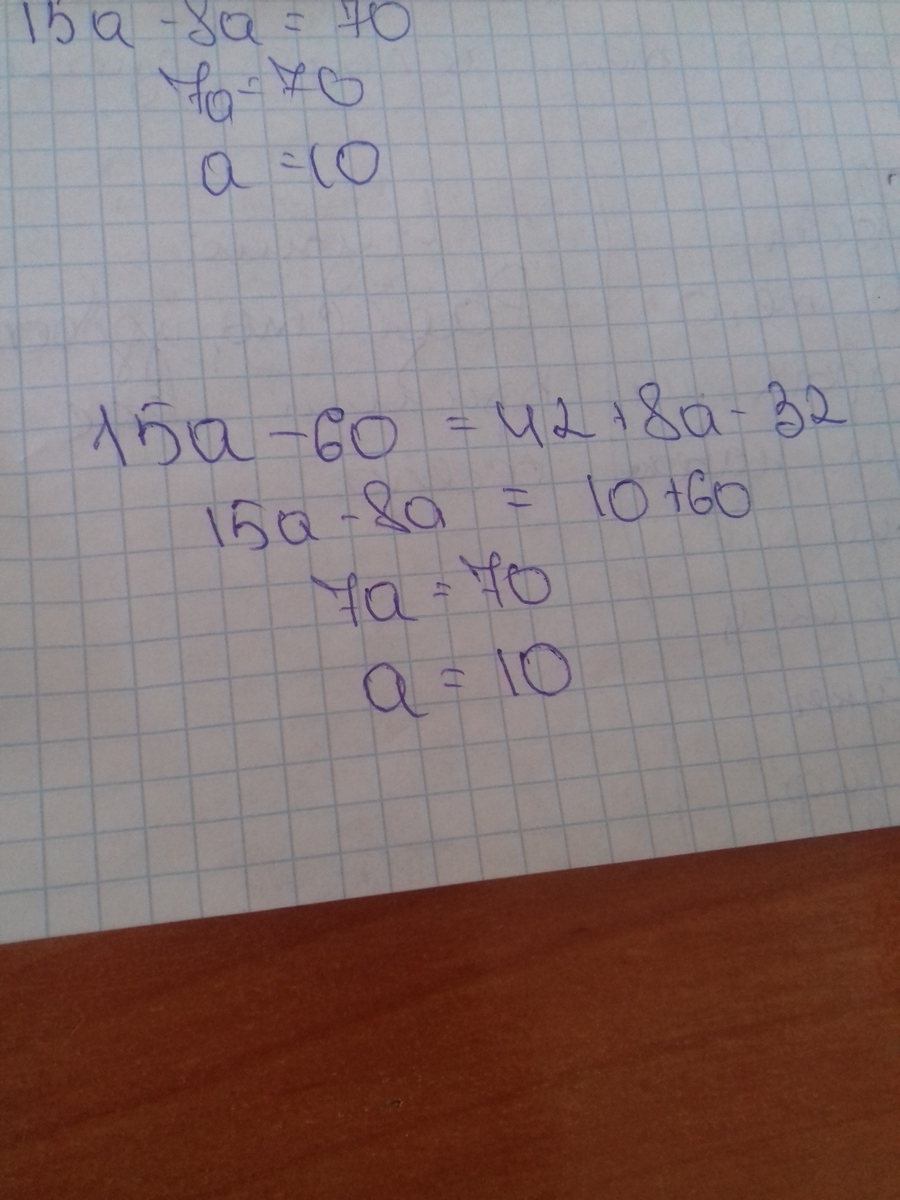 15a - 8a = 70
7a = 70
a = 10
15a - 60 = 42 + 8a - 32
15a - 8a = 10 + 60
7a = 70
a = 10